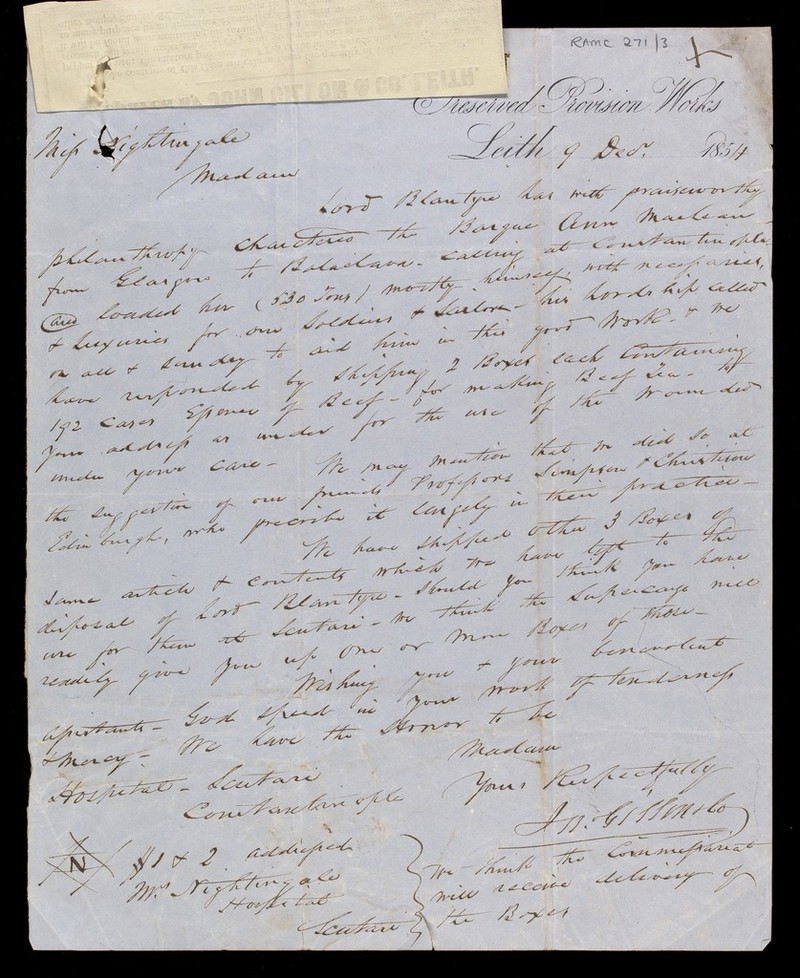 RAMC 271/3
JOHN GILLON & CO. LEITH.
Preserved Provision Works
Leith 9 Decr. 1854
Miss Nightingale
Madam
Lord Blantyre has with praiseworthy
philanthropy charctered the Barque Ann Maclean
from Glasgow to Balaclava - calling at Constantinople
and loaded her (530 Tons) mostly himself with necessaries,
& Luxuries for our Soldiers & Sailors - his Lordship called
on all & sundry to aid him in this good work - & we
have responded by shipping 2 Boxes each Containing
192 Cases Essence of Beef - for making Beef Tea - to
your address as under for the use of the wounded
under your care - We may mention that we did so at
the suggestion of our friends Professors Simpson & Christison
Edinburgh, who prescribe it largely in their practice -
We have shipped other 3 Boxes of
same article & contents which we have left to the
disposal of Lord Blantyre - should you think you have
use for them at Scutari - we think the Supercargo will
readily give you up one or more Boxes of those -
Wishing you & your benevolent
assistants - God speed in your work of tenderness
& mercy - We have the Honor to be
Madam
Hospital - Scutari
Constantinople
Yours Respectfully
Jn. Gillon & Co
N
$1 & 2 addressed
Mrs Nightingale
Hospital
Scutari
We think the Commissariat
will receive delivery of
the Boxes